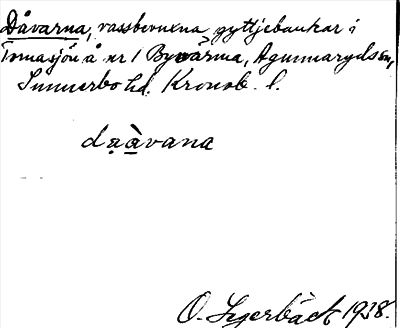 Dåvarna, vassbevuxna gyttjebankar i
Tomasjön å nr 1 Byvärma, Agunnaryds sn,
Sunnerbo hd. Kronob. l.
dạàvana
O. Segerbäck 1938.